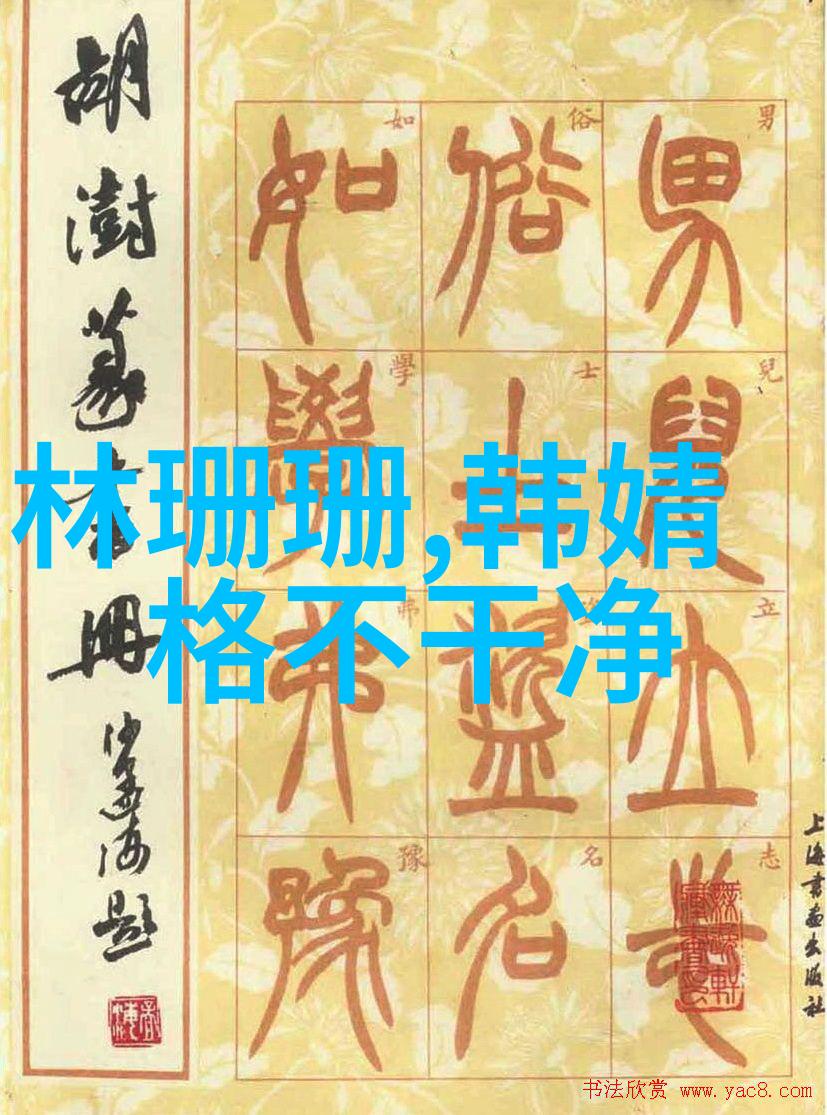 胡澍篆书册
沙孟海题
男
兒
立
志
俗
士
名
如
學
弗
豫
男
兒
立
志
俗
士
盜
名
如
學
弗
豫
林珊珊,韩婧
格不干净
上海書画出版社
书法欣赏 www.yac8.com